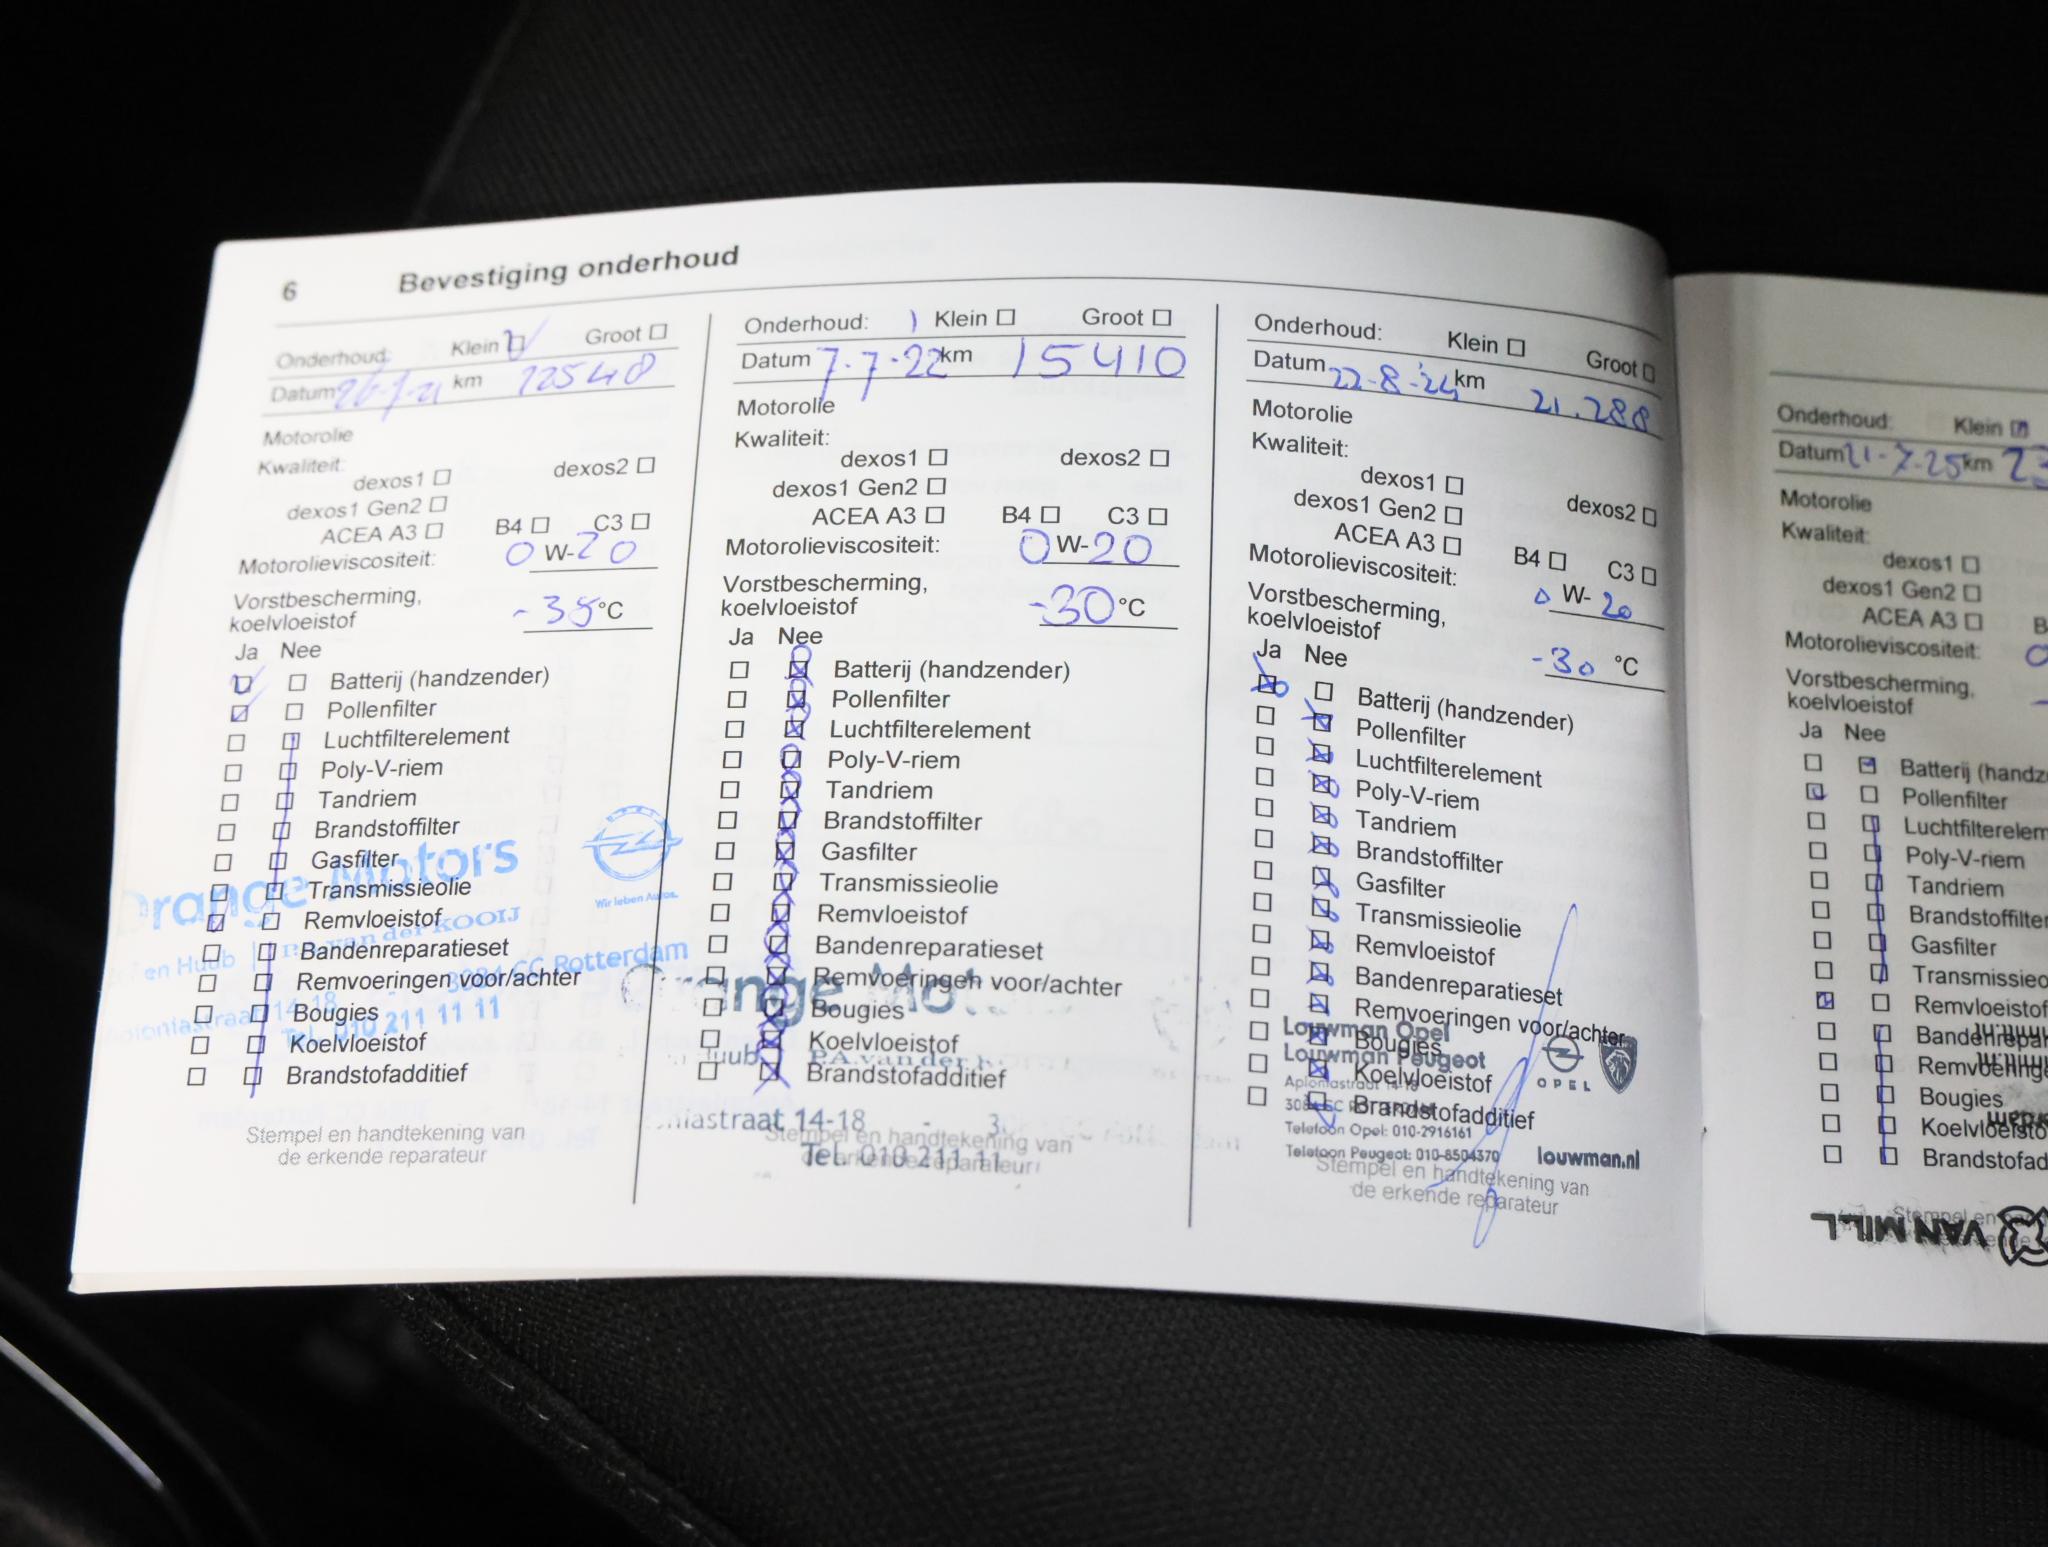 6 Bevestiging onderhoud
Onderhoud: Klein Groot
Datum km 12548
Motorolie
Kwaliteit:
dexos1 dexos2
dexos1 Gen2
ACEA A3 B4 C3
Motorolieviscositeit: 0 W-20
Vorstbescherming,
koelvloeistof -35 °C
Ja Nee
Batterij (handzender)
Pollenfilter
Luchtfilterelement
Poly-V-riem
Tandriem
Brandstoffilter
Gasfilter
Transmissieolie
Remvloeistof
Bandenreparatieset
Remvoeringen voor/achter
Bougies
Koelvloeistof
Brandstofadditief
Orange Motors
Wir leben Autos.
en Huub | P.A. van der KOOIJ
14-18 - 3084 CC Rotterdam
Tel. 010 211 11 11
Stempel en handtekening van
de erkende reparateur
Onderhoud: Klein Groot
Datum 7-7-22 km 15410
Motorolie
Kwaliteit:
dexos1 dexos2
dexos1 Gen2
ACEA A3 B4 C3
Motorolieviscositeit: 0 W-20
Vorstbescherming,
koelvloeistof -30 °C
Ja Nee
Batterij (handzender)
Pollenfilter
Luchtfilterelement
Poly-V-riem
Tandriem
Brandstoffilter
Gasfilter
Transmissieolie
Remvloeistof
Bandenreparatieset
Remvoeringen voor/achter
Bougies
Koelvloeistof
Brandstofadditief
Orange Mot
Huub P.A. van der
niastraat 14-18 - 3
Tel. 010 211 11
Stempel en handtekening van
de erkende reparateur
Onderhoud: Klein Groot
Datum 22-8-'24 km 21.288
Motorolie
Kwaliteit:
dexos1 dexos2
dexos1 Gen2
ACEA A3 B4 C3
Motorolieviscositeit: 0 W-20
Vorstbescherming,
koelvloeistof -30 °C
Ja Nee
Batterij (handzender)
Pollenfilter
Luchtfilterelement
Poly-V-riem
Tandriem
Brandstoffilter
Gasfilter
Transmissieolie
Remvloeistof
Bandenreparatieset
Remvoeringen voor/achter
Bougies
Koelvloeistof
Brandstofadditief
Louwman Opel
Louwman Peugeot
OPEL
Aploniastraat 14-18
3084 CC ROTTERDAM
Telefoon Opel: 010-2916161
Telefoon Peugeot: 010-8504370 louwman.nl
Stempel en handtekening van
de erkende reparateur
Onderhoud: Klein
Datum 21-7-25 km 23
Motorolie
Kwaliteit:
dexos1
dexos1 Gen2
ACEA A3 B
Motorolieviscositeit: 0
Vorstbescherming,
koelvloeistof -
Ja Nee
Batterij (handz
Pollenfilter
Luchtfilterelem
Poly-V-riem
Tandriem
Brandstoffilter
Gasfilter
Transmissieo
Remvloeistof
Bandenrepar
Remvoeringe
Bougies
Koelvloeisto
Brandstofad
VAN MILL
Stempel en